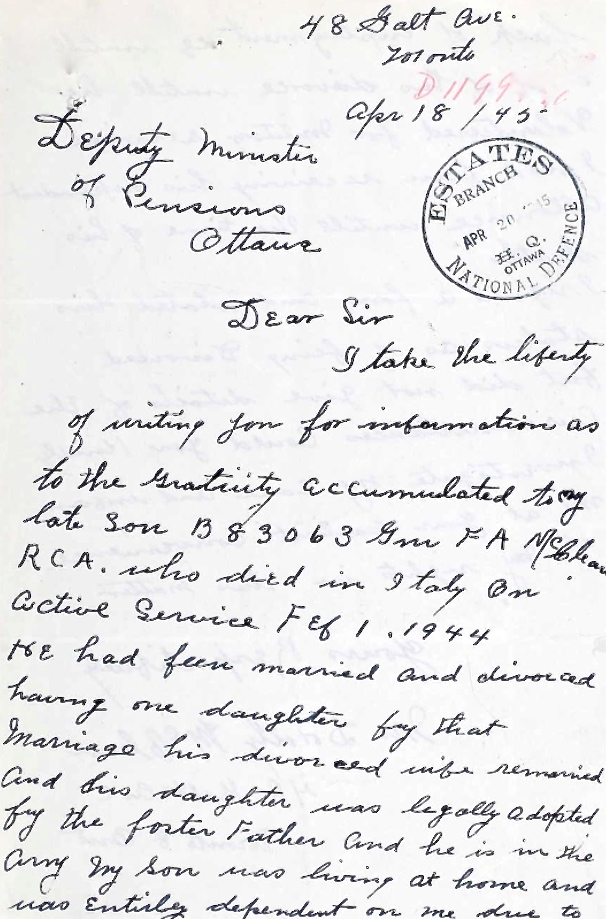 48 Galt Ave.
Toronto
D1199
Apr 18/45
Deputy Minister
of Pensions
Ottawa
ESTATES
BRANCH
APR 20
H. Q.
OTTAWA
NATIONAL DEFENCE
Dear Sir
I take the liberty
of writing you for information as
to the Gratuity accumulated to my
late Son B83063 Gnr F A McClean
RCA. who died in Italy On
Active Service Feb 1. 1944
He had been married and divorced
having one daughter by that
Marriage his divorced wife remarried
And this daughter was legally adopted
by the foster Father And he is in the
Army My Son was living at home and
was Entirley dependent on me due to